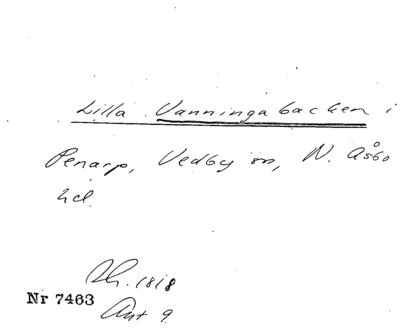 Lilla Vanningabacken i
Penarp, Vedby sn, N. Åsbo
hd.
Sk. 1818
Nr 7463
Ant 9.